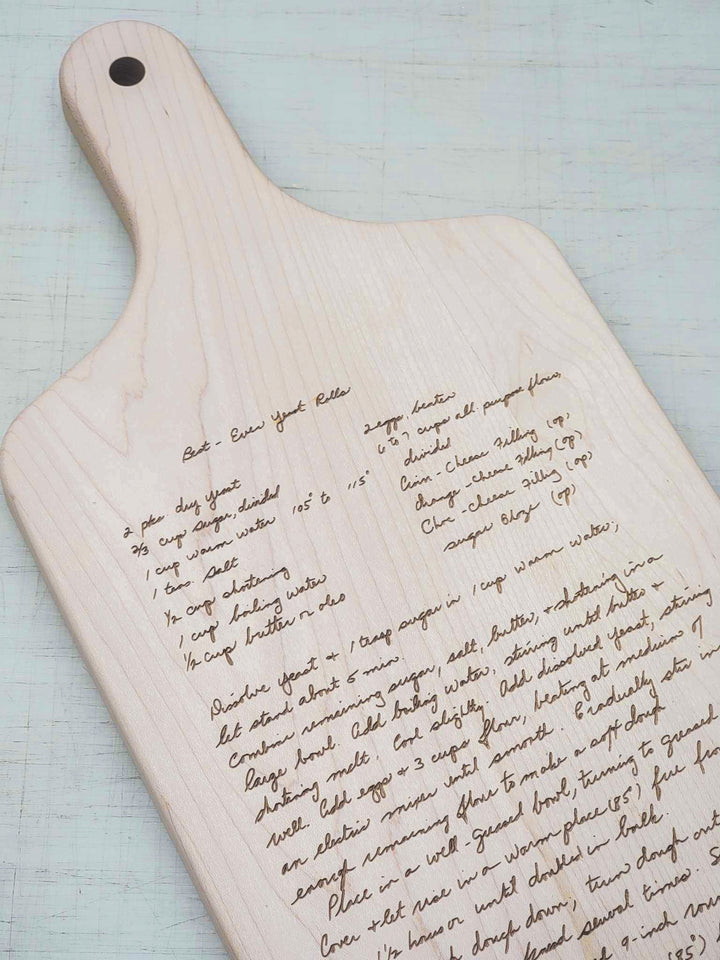 Best - Ever Yeast Rolls
2 pks. dry yeast
2/3 cup sugar, divided
1 cup warm water 105° to 115°
1 teas. salt
1/2 cup shortening
1 cup boiling water
1/2 cup butter or oleo
2 eggs, beaten
6 to 7 cups all purpose flour,
divided
Cinn - Cheese Filling (op)
Orange - Cheese Filling (op)
Choc - Cheese Filling (op)
sugar Glaze (op)
Dissolve yeast + 1 teasp sugar in 1 cup warm water;
let stand about 5 min.
Combine remaining sugar, salt, butter, + shortening in a
large bowl. Add boiling water, stirring until butter +
shortening melt. Cool slightly. Add dissolved yeast, stirring
well. Add eggs + 3 cups flour, beating at medium of
an electric mixer until smooth. Gradually stir in
enough remaining flour to make a soft dough.
Place in a well-greased bowl, turning to greased
Cover + let rise in a warm place (85°) free fro
1 1/2 hours or until doubled in bulk.
dough down, turn dough out
knead several times. S
9-inch roun
(85°)